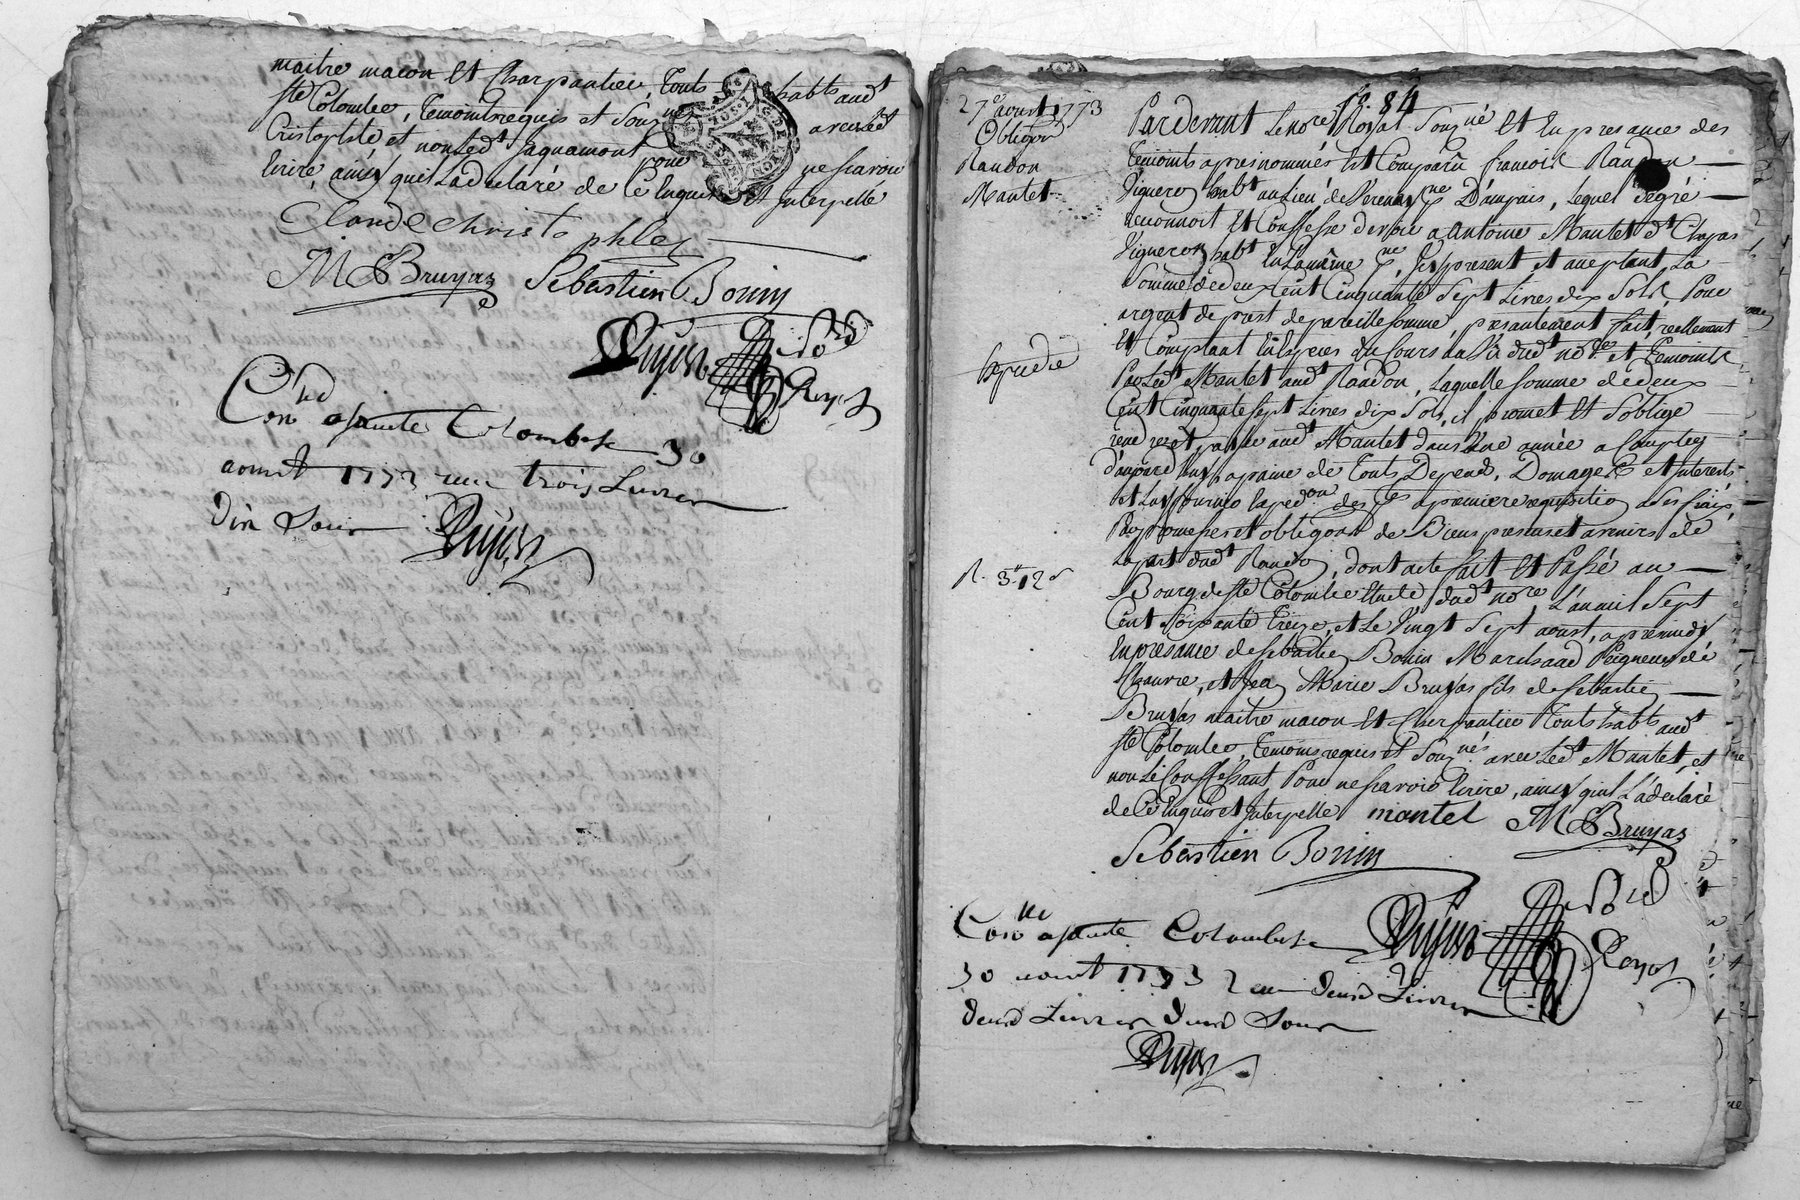 maitre maçon Et Charpantier, Touts habts audt
Ste Colombe, Temoint requis et Souznés avec Ledt
Cristophle, et non Ledt Jaquamont pour ne sçavoir
Ecrire, ainsy qu'il La declaré de Ce Enquis Et Interpellé
Claude christophle
JM Bruyas Sebastien Bonin
Dujast
Conlle a sainte Colombe le 30
aoust 1773 reçu trois Livres
dix Sous
27e aoust 1773
Obligaon
Randon
Mantet
fo. 84
Pardevant Le nore Royal Souzné Et En presance des
Temoints apres nommés Est Comparu francois Randon
Vigneron habt au Lieu de Verenay Dampuis, Lequel de gré
reconnoit Et Conffesse devoir a antoine Mantet dt Chapas
Vigneron habt En La même, Jcy present et aceptant, La
Somme de deux Cent Cinquante Sept Livres dix Sols, Pour
argent de prest de pareille Somme, presantement fait, reellement
Et Comptant En Especes du Cours La Vüe dudt nore et Temoints
Par Ledt Mantet audt Randon, Laquelle Somme de deux
Cent Cinquante Sept Livres dix Sols, il promet Et S'oblige
rendre et payer audt Mantet dans Une année a Compter
d'aujourd'huy a paine de Touts Depends, Domages et Interests
et Luy fournir Expedon des ptes a premiere requisition a Ses fraix,
Par promesses et obligaons de Biens presens et avenirs de
La part dudt Randon, dont acte fait Et Passé au
Bourg de Ste Colombe Etude dudt nore L'an mil Sept
Cent Soixante Treize, et Le Vingt Sept aoust, apres midy,
En presance de Sebastien Bonin Marchand Peigneur de
Chanvre, et Jean Marie Bruyas fils de Sebastien
Bruyas maitre maçon Et Charpantier Touts habts audt
Ste Colombe, Temoins requis et Souznés avec Ledt Mantet, et
non Le Conffessant Pour ne sçavoir Ecrire, ainsy qu'il L'a declaré
de Ce Enquis et Interpelle mantet JM Bruyas
Sebastien Bonin
R. 3lt 12s
Conlle a sainte Colombe le
30 aoust 1773 reçu deux Livres
deux Livres deux Sous